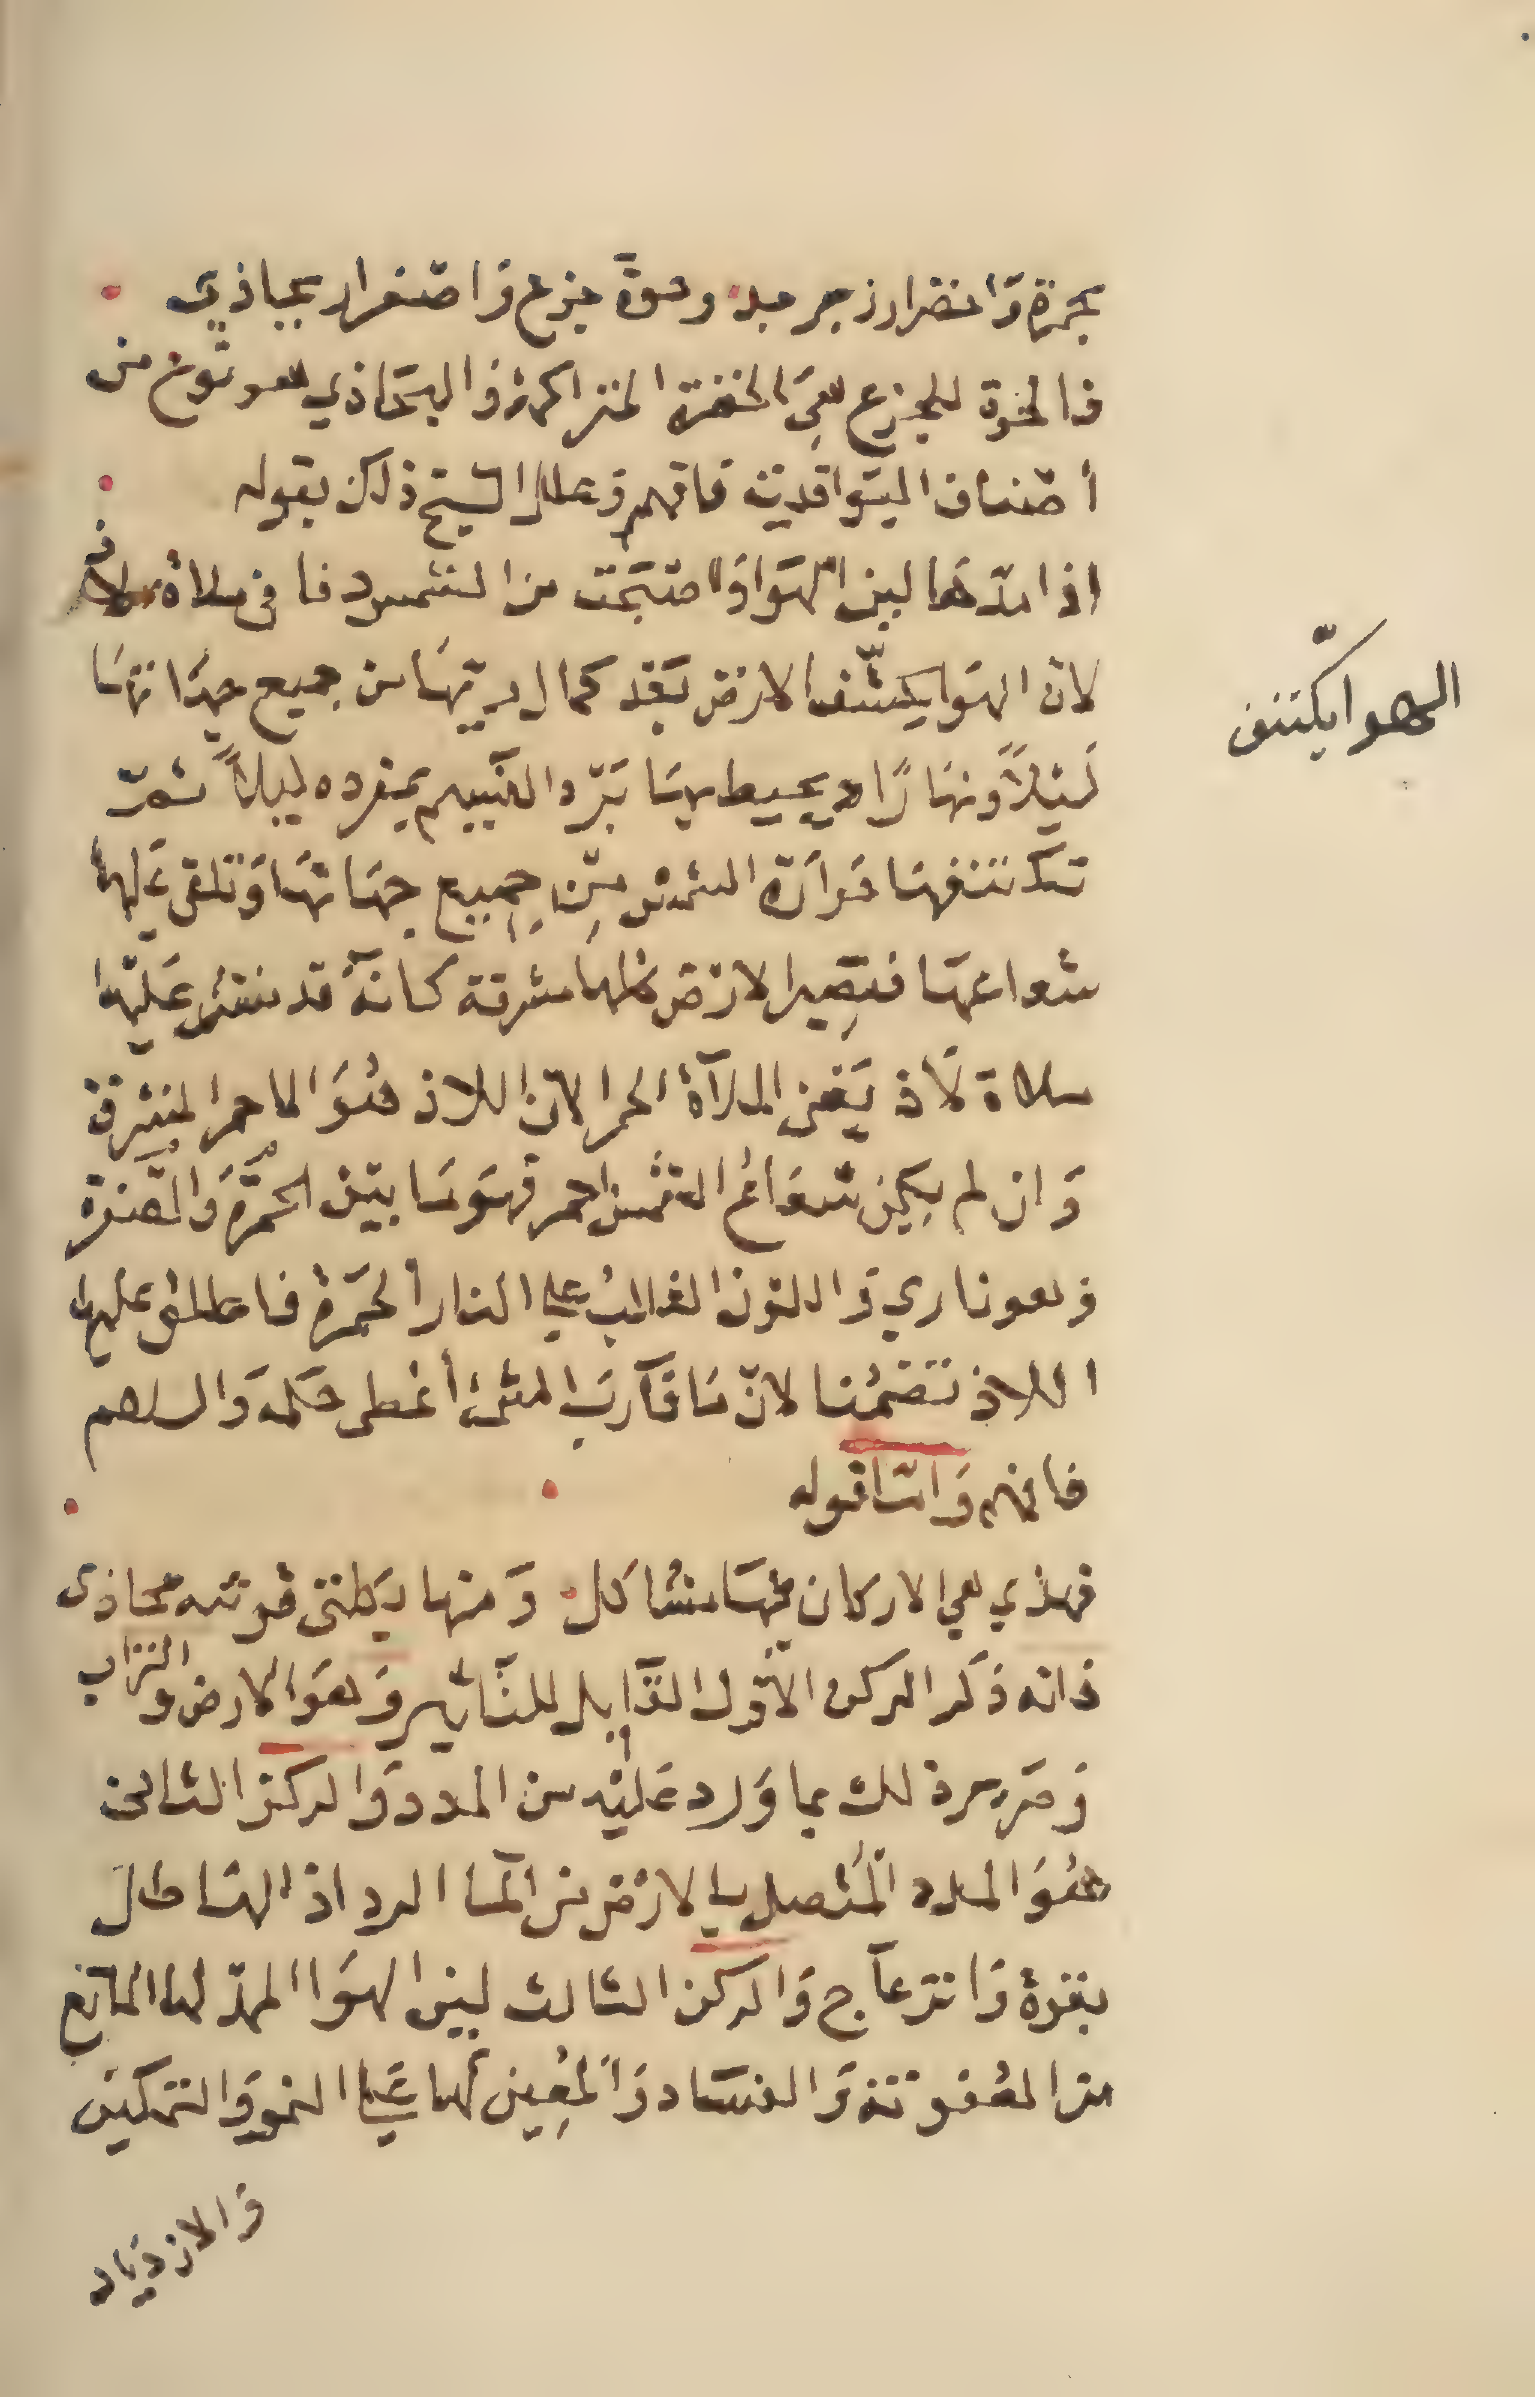 بحمرة واخضرار زبرجد وحوة جزع واصفرار بجاذي
فالحوة للجزع هي الخضرة المتراكمة والبجاذي هو نوع من
أصناف اليواقيت فافهم وعلل الشيخ ذلك بقوله
اذا مدها لين الهوا واضحت من الشمس دفا في ملاة ملاف
لان الهوا يكشف الارض بعد كمال تربيتها من جميع جهاتها
ليلا ونهارا ويحيط بها برد النسيم بمفرده ليلا ثم
تكتنفها حرارة الشمس من جميع جهاتها وتلقي عليها
شعاعها فتصير الارض كلها مشرقة كانه قد نشر عليها
ملاة لاذ يعني الملاة الحمرا لان اللاذ هو الاحمر المشرق
وان لم يكن شعاع الشمس احمر فهو ما بين الحمرة والصفرة
وهو ناري واللون الغالب علي النار الحمرة فاطلق عليها
اللاذ تضمنا لان ما قارب الشئ أعطى حكمه والسلام
فافهم واما قوله
فهذي هي الاركان فيها مشاكل ومنها يكنى قوته محاذى
فانه ذكر الركن الاول القابل للتأثير وهو الارض والتراب
وصرح ذلك بما ورد عليه من المدد والركن الثاني
هو المدد المتصل بالارض من الما الرداذ الهاطل
بقوة وانزعاج والركن الثالث لين الهوا الممد لها المانع
من العفونة والفساد والمعين لها علي النمو والتمكين
والازدياد
الهوا يكتنف